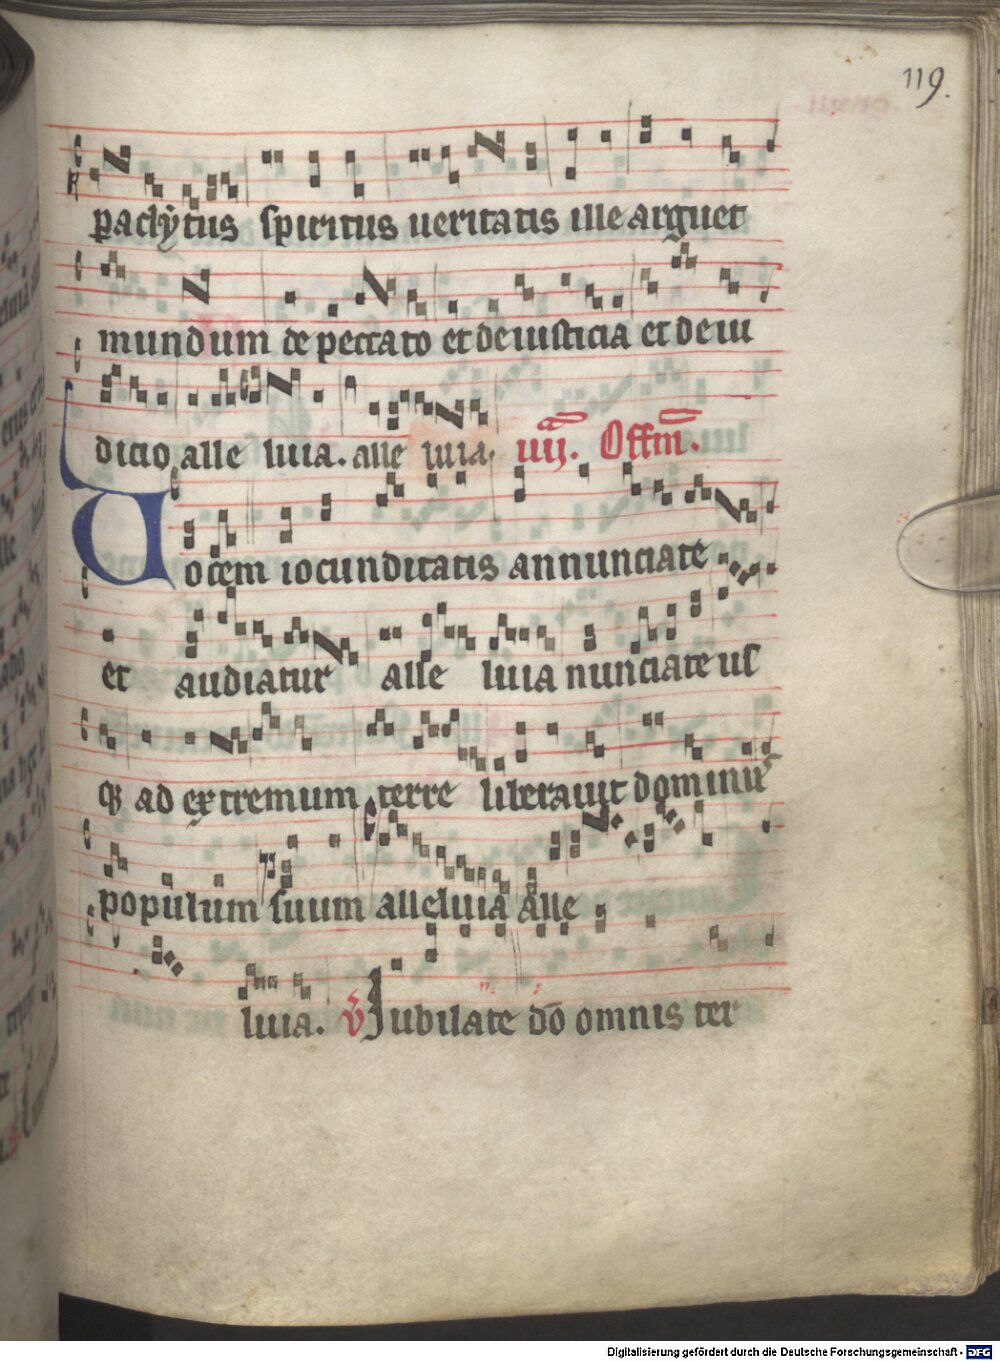 119.
paclytus spiritus ueritatis ille arguet
mundum de peccato et de iusticia et de iu
dicio alle luia. alle luia. Offm.
Uocem iocunditatis annunciate
et audiatur alle luia nunciate us
q ad extremum terre liberauit dominus
populum suum alleluia alle
luia. v Jubilate do omnis ter
Digitalisierung gefördert durch die Deutsche Forschungsgemeinschaft - DFG